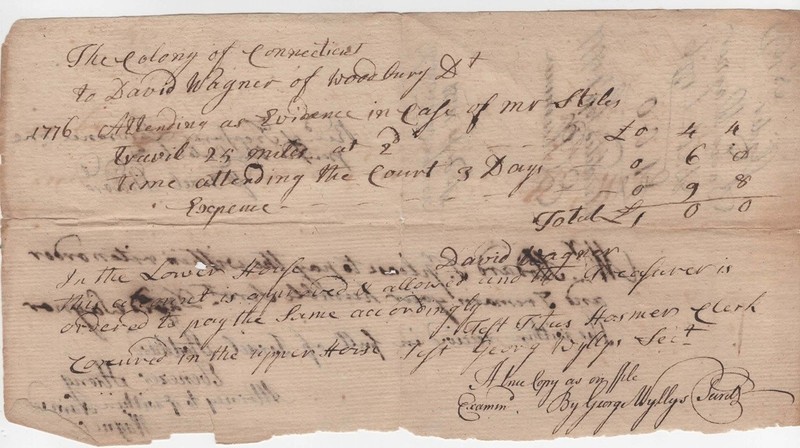 The Colony of Connecticut
to David Wagner of Woodbury Dt
1776 Attending as Evidence in Case of Mr Stiles
Travil 25 miles at 2d £0 4 4
Time attending the Court 3 Days 0 6 0
Expence 0 9 8
Total £1 0 0
David Wagner
In the Lower House
this accompt is approved & allowed and the Treasurer is
ordered to pay the Same accordingly
Test Titus Hosmer Clerk
Concured in the upper House Test George Wyllys Sect
A true Copy as on file
Examind By George Wyllys Secret